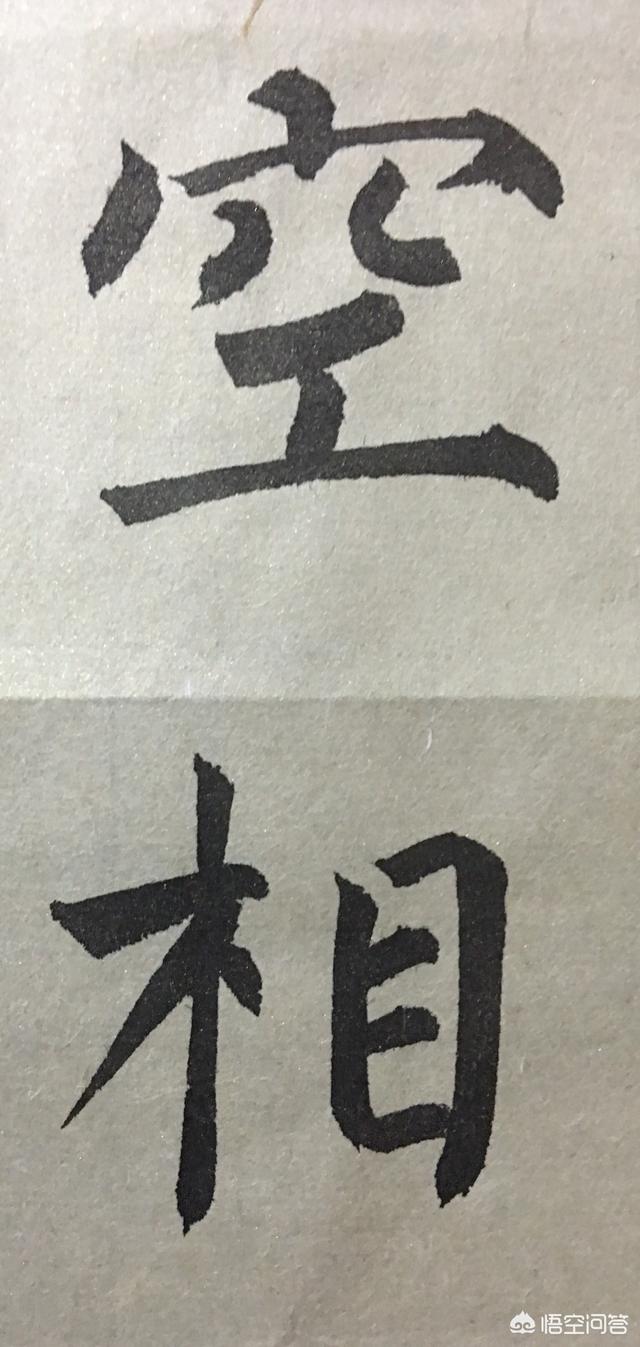 空
相
悟空问答